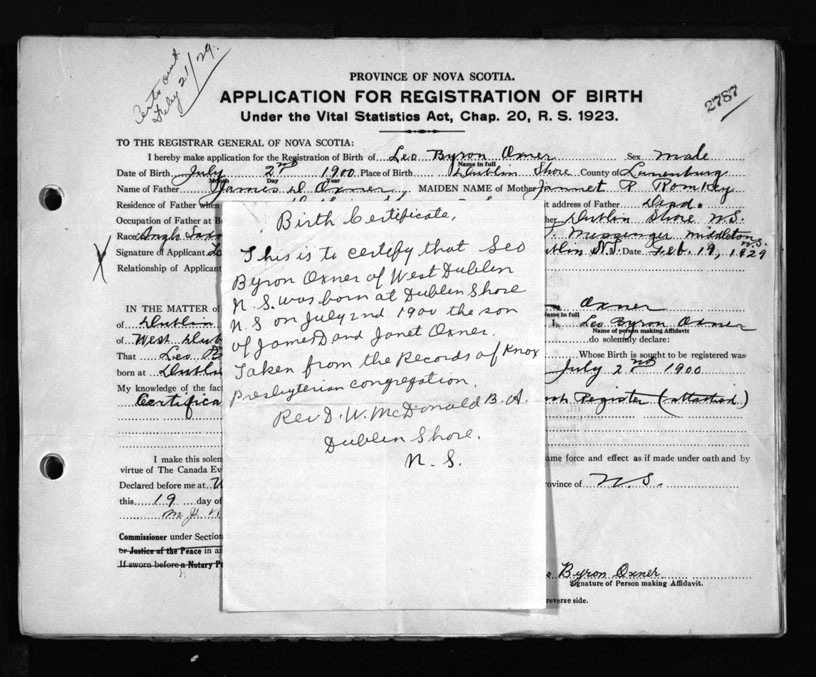 Certs out
July 21/29.
PROVINCE OF NOVA SCOTIA.
APPLICATION FOR REGISTRATION OF BIRTH
Under the Vital Statistics Act, Chap. 20, R. S. 1923.
2787
TO THE REGISTRAR GENERAL OF NOVA SCOTIA:
I hereby make application for the Registration of Birth of Leo Byron Oxner Sex Male
Name in full
Date of Birth July 2nd 1900 Place of Birth Dublin Shore County of Lunenburg
Month Day Year
Name of Father James D Oxner MAIDEN NAME of Mother Jannet R Romkey
Residence of Father when t address of Father Dead.
Occupation of Father at B Dublin Shore N.S.
Race Anglo Messenger Middleton N.S.
Signature of Applicant Date Feb. 19, 1929
Relationship of Applicant
X
Birth Certificate.
This is to certify that Leo
Byron Oxner of West Dublin
N. S. was born at Dublin Shore
N S on July 2nd 1900 the son
of James D and Janet Oxner.
Taken from the Records of Knox
Presbyterian congregation.
Rev D. W. McDonald B. A.
Dublin Shore.
N. S.
IN THE MATTER of Oxner
me in full
of Dublin I, Leo Byron Oxner
Name of person making Affidavit
of West Dub do solemnly declare:
That Leo Whose Birth is sought to be registered was
born at Dublin July 2nd 1900
My knowledge of the fac
Certifica Register (attached)
I make this solem ame force and effect as if made under oath and by
virtue of The Canada Ev
Declared before me at W ovince of N.S.
this 19 day of
Commissioner under Section
or Justice of the Peace in a
If sworn before a Notary P
Byron Oxner
Signature of Person making Affidavit.
reverse side.